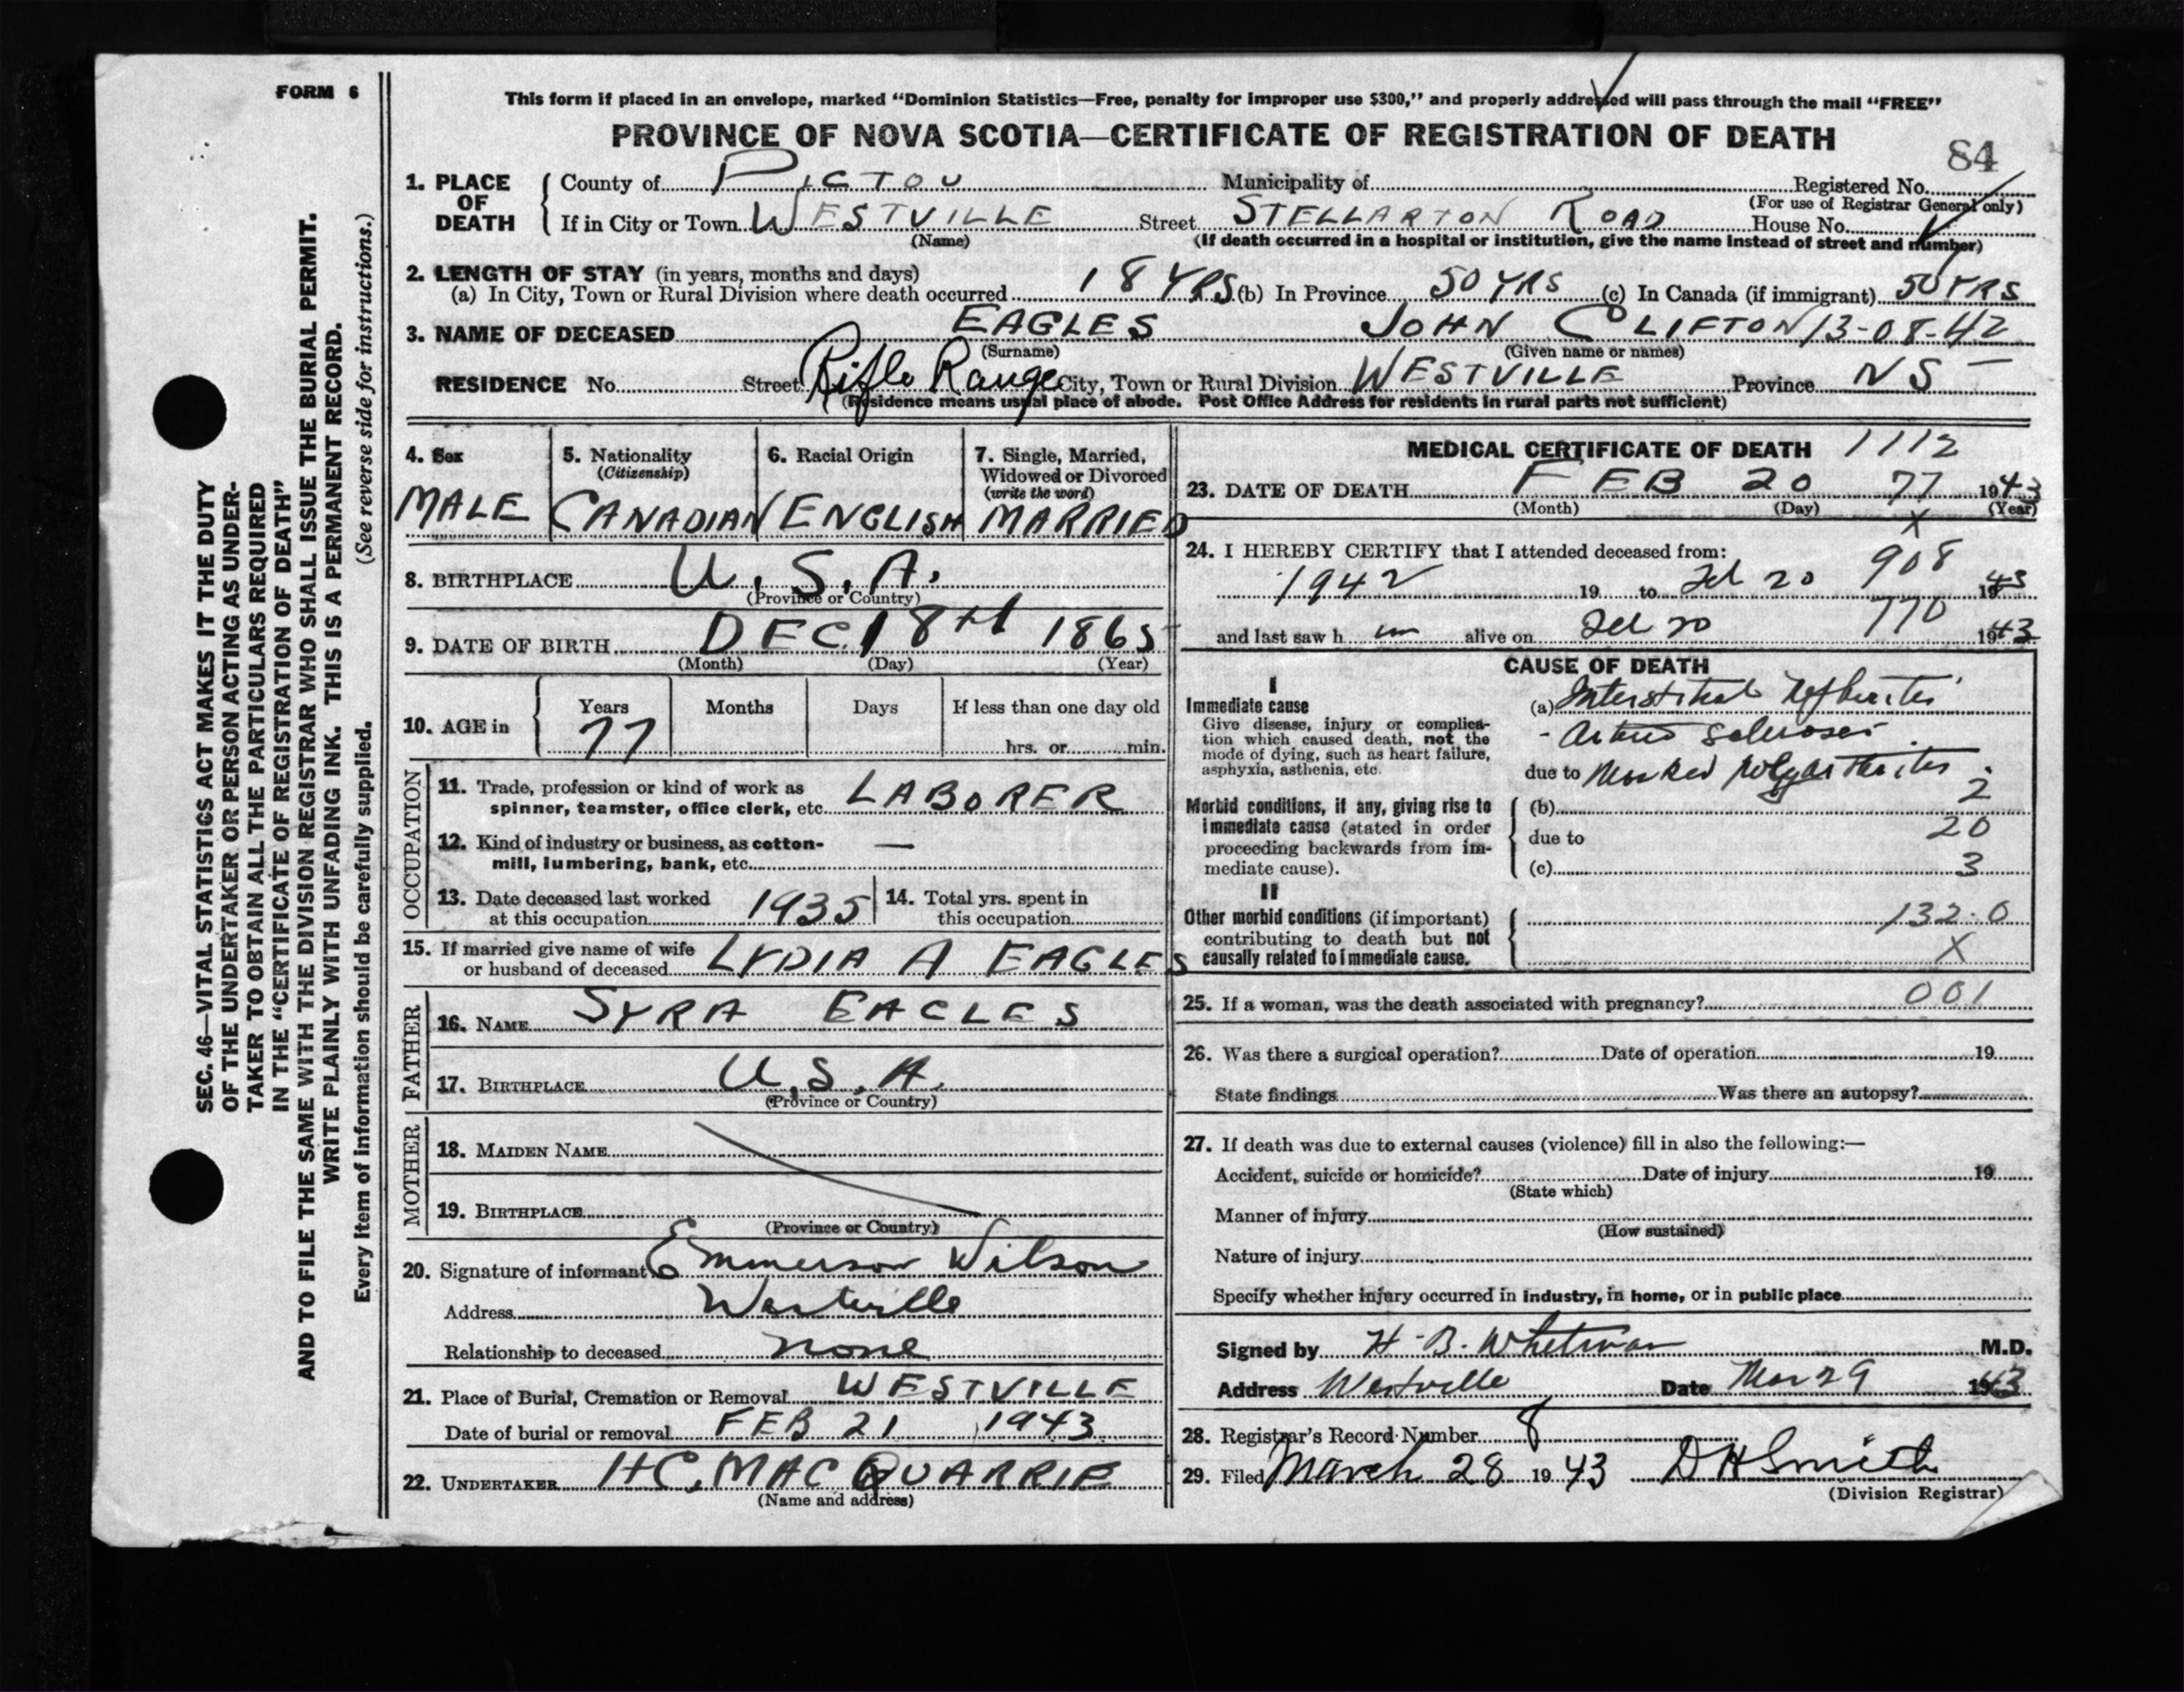 FORM 6
This form if placed in an envelope, marked “Dominion Statistics—Free, penalty for improper use $300,” and properly addressed will pass through the mail “FREE”
PROVINCE OF NOVA SCOTIA—CERTIFICATE OF REGISTRATION OF DEATH
84
1. PLACE OF DEATH
County of PICTOU Municipality of Registered No.
(For use of Registrar General only)
If in City or Town WESTVILLE Street STELLARTON ROAD House No.
(Name) (If death occurred in a hospital or institution, give the name instead of street and number)
2. LENGTH OF STAY (in years, months and days)
(a) In City, Town or Rural Division where death occurred 18 YRS (b) In Province 50 YRS (c) In Canada (if immigrant) 50 YRS
3. NAME OF DECEASED EAGLES JOHN CLIFTON 13-08-42
(Surname) (Given name or names)
RESIDENCE No. Street Rifle Range City, Town or Rural Division WESTVILLE Province NS
(Residence means usual place of abode. Post Office Address for residents in rural parts not sufficient)
4. Sex
MALE
5. Nationality
(Citizenship)
CANADIAN
6. Racial Origin
ENGLISH
7. Single, Married,
Widowed or Divorced
(write the word)
MARRIED
8. BIRTHPLACE U.S.A.
(Province or Country)
9. DATE OF BIRTH DEC. 18TH 1865
(Month) (Day) (Year)
10. AGE in
Years Months Days If less than one day old
77 hrs. or min.
OCCUPATION
11. Trade, profession or kind of work as
spinner, teamster, office clerk, etc. LABORER
12. Kind of industry or business, as cotton-
mill, lumbering, bank, etc. —
13. Date deceased last worked
at this occupation 1935
14. Total yrs. spent in
this occupation
15. If married give name of wife
or husband of deceased LYDIA A EAGLES
FATHER
16. NAME SYRA EAGLES
17. BIRTHPLACE U.S.A.
(Province or Country)
MOTHER
18. MAIDEN NAME
19. BIRTHPLACE
(Province or Country)
20. Signature of informant Emmerson Wilson
Address Westville
Relationship to deceased none
21. Place of Burial, Cremation or Removal WESTVILLE
Date of burial or removal FEB 21 1943
22. UNDERTAKER H C, MAC QUARRIE
(Name and address)
MEDICAL CERTIFICATE OF DEATH 1112
23. DATE OF DEATH FEB 20 77 1943
(Month) (Day) (Year)
X
24. I HEREBY CERTIFY that I attended deceased from:
908
1942 19 to Feb 20 1943
770
and last saw h im alive on Feb 20 1943
CAUSE OF DEATH
I
Immediate cause
Give disease, injury or complica-
tion which caused death, not the
mode of dying, such as heart failure,
asphyxia, asthenia, etc.
(a) Interstitial Nephritis
- Arterio Sclerosis
due to Marked Polyarthritis.
Morbid conditions, if any, giving rise to
immediate cause (stated in order
proceeding backwards from im-
mediate cause).
(b) 2
due to 20
(c) 3
II
Other morbid conditions (if important)
contributing to death but not
causally related to immediate cause.
132.0
X
25. If a woman, was the death associated with pregnancy? 001
26. Was there a surgical operation? Date of operation 19
State findings Was there an autopsy?
27. If death was due to external causes (violence) fill in also the following:—
Accident, suicide or homicide? Date of injury 19
(State which)
Manner of injury
(How sustained)
Nature of injury
Specify whether injury occurred in industry, in home, or in public place
Signed by H. B. Whitman M.D.
Address Westville Date Mar 29 1943
28. Registrar's Record Number 8
29. Filed March 28 1943 D H Smith
(Division Registrar)
SEC. 46—VITAL STATISTICS ACT MAKES IT THE DUTY
OF THE UNDERTAKER OR PERSON ACTING AS UNDER-
TAKER TO OBTAIN ALL THE PARTICULARS REQUIRED
IN THE “CERTIFICATE OF REGISTRATION OF DEATH”
AND TO FILE THE SAME WITH THE DIVISION REGISTRAR WHO SHALL ISSUE THE BURIAL PERMIT.
WRITE PLAINLY WITH UNFADING INK. THIS IS A PERMANENT RECORD.
Every item of information should be carefully supplied. (See reverse side for instructions.)